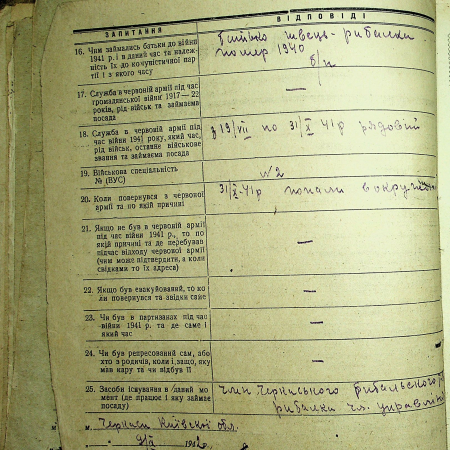 ЗАПИТАННЯ
ВІДПОВІДІ
16. Чим займались батьки до війни
1941 р. і в даний час та належ-
ність їх до комуністичної пар-
тії і з якого часу
Батько швець-рибалка
помер 1940
б/п
17. Служба в червоній армії під час
громадянської війни 1917—22
років, рід військ та займаєма
посада
—
18. Служба в червоній армії під
час війни 1941 року, який час,
рід військ, останнє військове
звання та займаєма посада
з 19/VII по 31/X 41р рядовий
19. Військова спеціальність
№ (ВУС)
№2
20. Коли повернувся з червоної
армії та по якій причині
31/X-41р попали в окружен
21. Якщо не був в червоній армії
під час війни 1941 р., то по
якій причині та де перебував
підчас відходу червоної армії
(чим може підтвердити, а коли
свідками то їх адреса)
—
22. Якщо був евакуйований, то ко-
ли повернувся та звідки саме
—
23. Чи був в партизанах під час
війни 1941 р. та де саме і
який час
—
24. Чи був репресований сам, або
хто з родичів, коли і за що, яку
мав кару та чи відбув її
—
25. Засоби існування в даний мо-
мент (де працює і яку займає
посаду)
член Черкаського рибальського
рибалки чл. управління
м. Черкаси Київської обл.